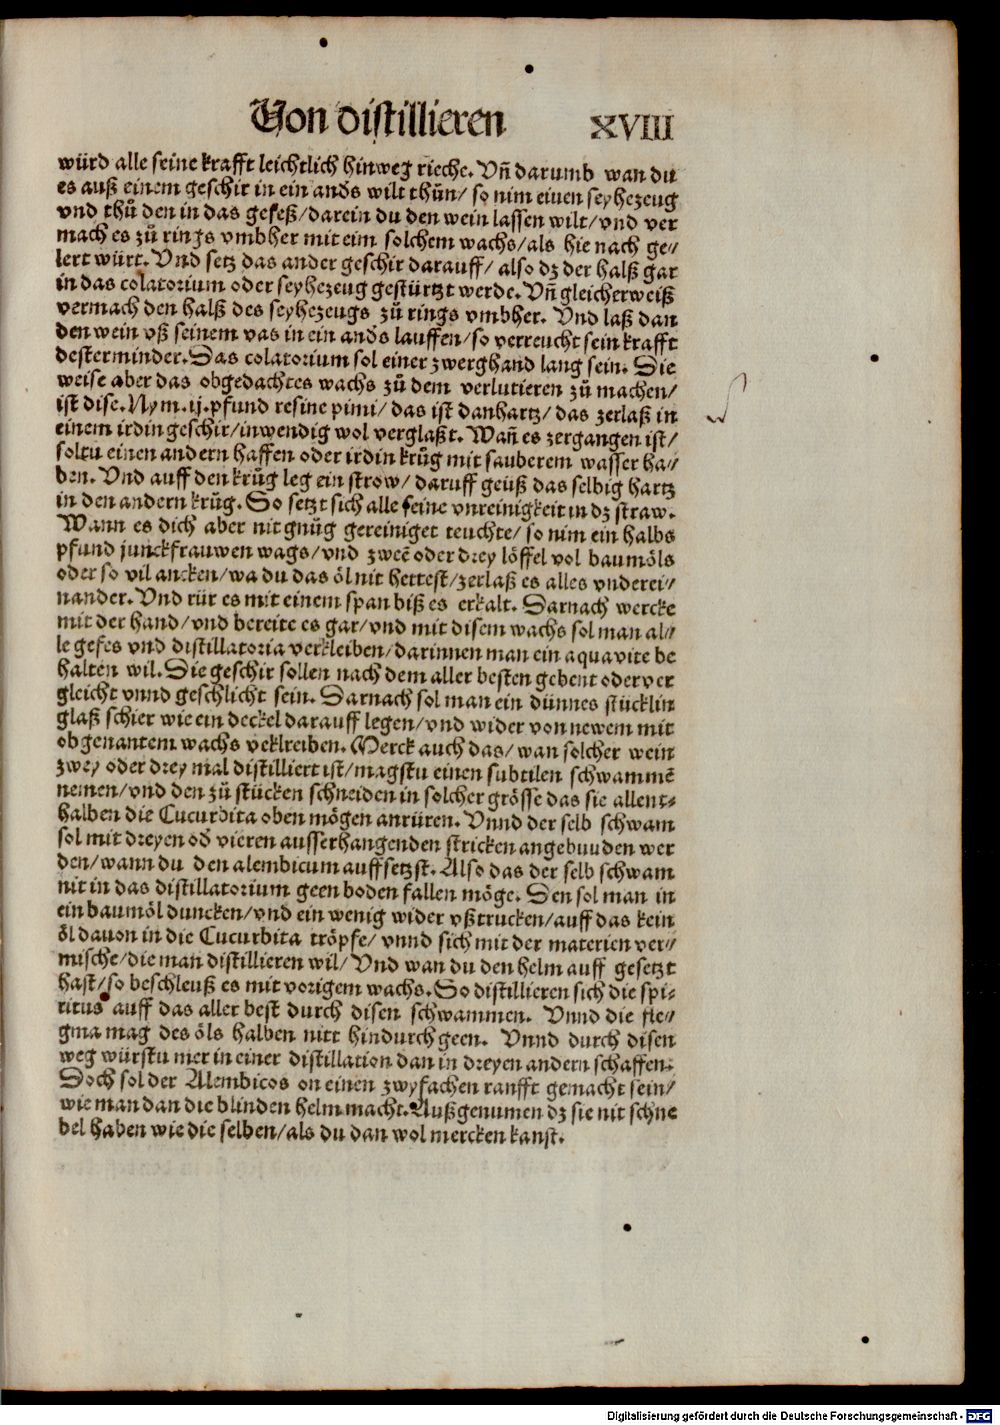 Von distillieren XVIII
würd alle seine krafft leichtlich hinweg rieche. Vñ darumb wan du
es auß einem geschir in ein anďs wilt thůn/ so nim einen seyhezeug
vnd thů den in das gefeß/darein du den wein lassen wilt/vnd ver
mach es zů rings vmbher mit eim solchem wachs/als hie nach ge⸗
lert würt. Vnd setz das ander geschir darauff/ also dz der halß gar
in das colatorium oder seyhezeug gestürtzt werde. Vñ gleicherweiß
vermach den halß des seyhezeugs zů rings vmbher. Vnd laß dan
den wein vß seinem vas in ein anďs lauffen/so verreucht sein krafft
desterminder. Das colatorium sol einer zwerghand lang sein. Die
weise aber das obgedachtes wachs zů dem verlutieren zů machen/
ist dise. Nym .ij. pfund resine pimi/ das ist danhartz/ das zerlaß in
einem irdin geschir/inwendig wol verglaßt. Wañ es zergangen ist/
soltu einen andern haffen oder irdin krůg mit sauberem wasser ha⸗
ben. Vnd auff den krůg leg ein strow/ daruff geüß das selbig hartz
in den andern krůg. So setzt sich alle seine vnreinigkeit in dz straw.
Wann es dich aber nit gnůg gereiniget teuchte/ so nim ein halbs
pfund junckfrauwen wags/vnd zweē oder drey löffel vol baumöls
oder so vil ancken/wa du das öl nit hettest/zerlaß es alles vnderei⸗
nander. Vnd rür es mit einem span biß es erkalt. Darnach wercke
mit der hand/vnd bereite es gar/vnd mit disem wachs sol man al⸗
le gefes vnd distillatoria verkleiben/darinnen man ein aquavite be
halten wil. Die geschir sollen nach dem aller besten gebent oder ver
gleicht vnnd geschlicht sein. Darnach sol man ein dünnes stücklin
glaß schier wie ein deckel darauff legen/vnd wider von newem mit
obgenantem wachs veklreiben. Merck auch das/wan solcher wein
zwey oder drey mal distilliert ist/magstu einen subtilen schwammē
nemen/vnd den zů stücken schneiden in solcher grösse das sie allent⸗
halben die Cucurbita oben mögen anrüren. Vnnd der selb schwam
sol mit dreyen oď vieren ausserhangenden stricken angebuuden wer
den/wann du den alembicum auffsetzst. Also das der selb schwam
nit in das distillatorium geen boden fallen möge. Den sol man in
ein baumöl duncken/vnd ein wenig wider vßtrucken/auff das kein
öl dauon in die Cucurbita tröpfe/ vnnd sich mit der materien ver⸗
mische/die man distillieren wil/ Vnd wan du den helm auff gesetzt
hast/so beschleuß es mit vorigem wachs. So distillieren sich die spi⸗
ritus auff das aller best durch disen schwammen. Vnnd die fle⸗
gma mag des öls halben nitt hindurch geen. Vnnd durch disen
weg würstu mer in einer distillation dan in dreyen andern schaffen.
Doch sol der Alembicos on einen zwyfachen ranfft gemacht sein/
wie man dan die blinden helm macht. Außgenumen dz sie nit schne
bel haben wie die selben/als du dan wol mercken kanst.
Digitalisierung gefördert durch die Deutsche Forschungsgemeinschaft - DFG